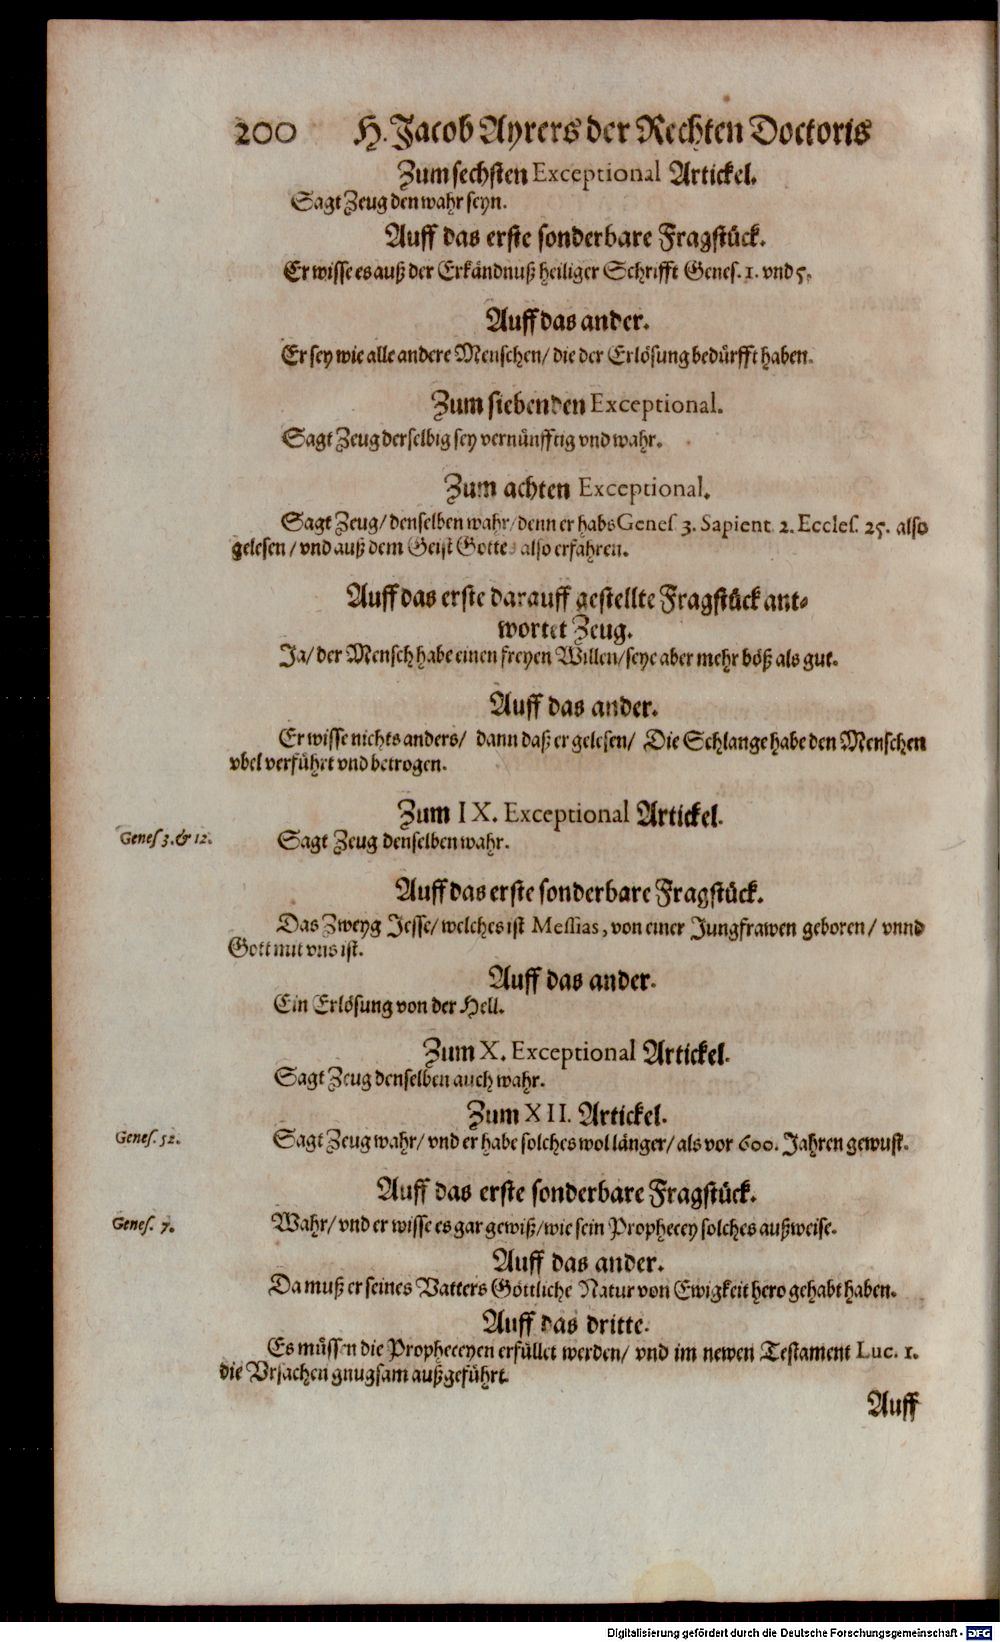 200 H. Jacob Ayrers der Rechten Doctoris
Zum sechsten Exceptional Artickel.
Sagt Zeug den wahr seyn.
Auff das erste sonderbare Fragstück.
Er wisse es auß der Erkändnuß heiliger Schrifft Genes. 1. vnd 5.
Auff das ander.
Er sey wie alle andere Menschen/ die der Erlösung bedürfft haben.
Zum siebenden Exceptional.
Sagt Zeug derselbig sey vernünfftig vnd wahr.
Zum achten Exceptional.
Sagt Zeug/ denselben wahr/ denn er habs Genes. 3. Sapient. 2. Eccles. 25. also
gelesen/ vnd auß dem Geist Gottes also erfahren.
Auff das erste darauff gestellte Fragstück ant-
wortet Zeug.
Ja/ der Mensch habe einen freyen Willen/ seye aber mehr böß als gut.
Auff das ander.
Er wisse nichts anders/ dann daß er gelesen/ Die Schlange habe den Menschen
vbel verführt vnd betrogen.
Zum IX. Exceptional Artickel.
Genes 3. & 12.
Sagt Zeug denselben wahr.
Auff das erste sonderbare Fragstück.
Das Zweyg Jesse/ welches ist Messias, von einer Jungfrawen geboren/ vnnd
Gott mit vns ist.
Auff das ander.
Ein Erlösung von der Hell.
Zum X. Exceptional Artickel.
Sagt Zeug denselben auch wahr.
Zum XII. Artickel.
Genes. 52.
Sagt Zeug wahr/ vnd er habe solches wol länger/ als vor 600. Jahren gewust.
Auff das erste sonderbare Fragstück.
Genes. 7.
Wahr/ vnd er wisse es gar gewiß/ wie sein Prophecey solches außweise.
Auff das ander.
Da muß er seines Vatters Göttliche Natur von Ewigkeit hero gehabt haben.
Auff das dritte.
Es müssen die Propheceyen erfüllet werden/ vnd im newen Testament Luc. 1.
die Vrsachen gnugsam außgeführt.
Auff
Digitalisierung gefördert durch die Deutsche Forschungsgemeinschaft - DFG